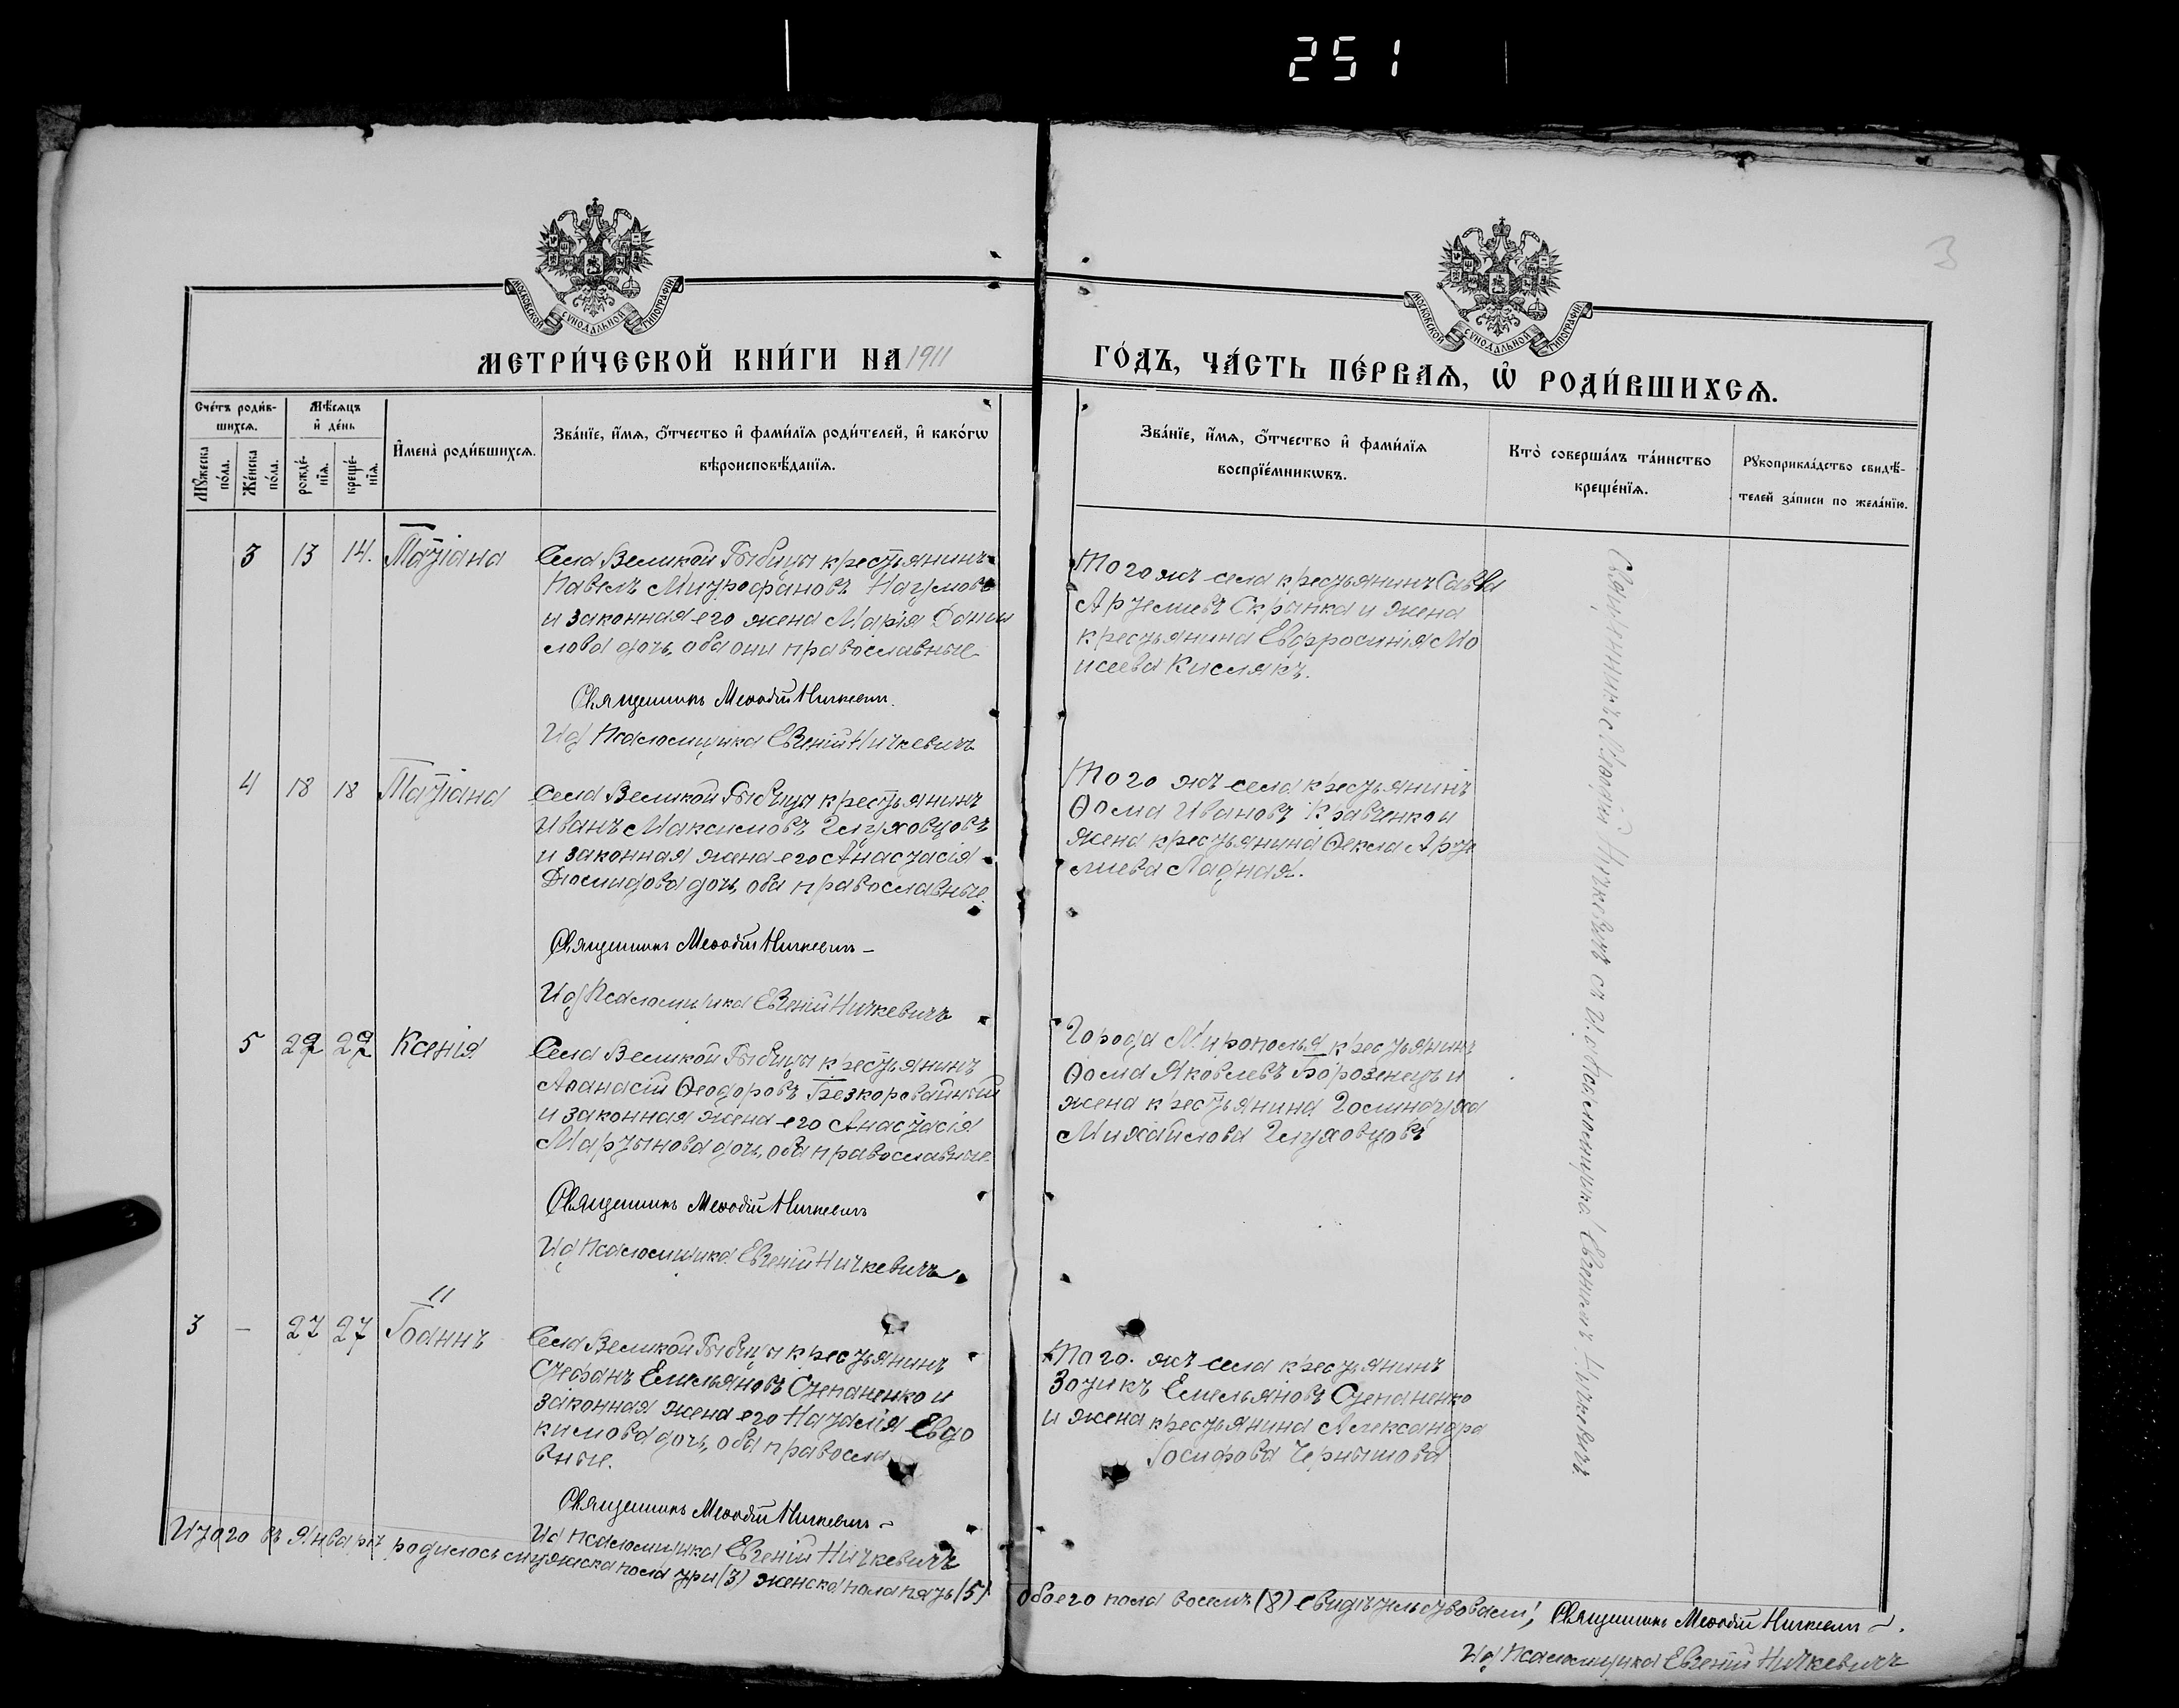 251
3
МОСКОВСКОЙ СѴНОДАЛЬНОЙ ТИПОГРАФІИ
МОСКОВСКОЙ СѴНОДАЛЬНОЙ ТИПОГРАФІИ
МЕТРИ́ЧЕСКОЙ КНИ́ГИ НА 1911
ГО́ДЪ, ЧА́СТЬ ПЕ́РВАѦ, Ѡ҆ РОДИ́ВШИХСѦ.
Сче́тъ роди́в-
шихсѧ.
Мꙋ́жеска по́ла.
Же́нска по́ла.
Мѣ́сѧцъ
и҆ де́нь
рожде́-
нїѧ.
креще́-
нїѧ.
И҆мена̀ роди́вшихсѧ.
Зва́нїе, и҆́мѧ, ѻ҆́тчество и҆ фами́лїѧ роди́телей, и҆ како́гѡ
вѣроисповѣ́данїѧ.
Зва́нїе, и҆́мѧ, ѻ҆́тчество и҆ фами́лїѧ
воспрїе́мникѡвъ.
Кто̀ соверша́лъ та́инство
креще́нїѧ.
Рꙋкоприкла́дство свидѣ́-
телей за́писи по жела́нїю.
3 13 14. Татіана
Села Великой Рыбицы крестьянинъ
Павелъ Митрофановъ Наумовъ
и законная его жена Марія Дани
лова дочь, оба они православные
Священникъ Меѳодій Ничкевичъ.
И д Псаломщика Евгеній Ничкевичъ
Того жъ села крестьянинъ Савва
Артемьевъ Скрынка и жена
крестьянина Евфросинія Мо
исеева Кислякъ.
4 18 18 Татіана
Села Великой Рыбицы крестьянинъ
Иванъ Максимовъ Глуховцовъ
и законная жена его Анастасія
Діомидова дочь, оба православные.
Священникъ Меѳодій Ничкевичъ –
И д Псаломщика Евгеній Ничкевичъ
Того жъ села крестьянинъ
Ѳома Ивановъ Кравченко и
жена крестьянина Ѳекла Арте
миева Ладная.
5 22 22 Ксенія
Села Великой Рыбицы крестьянинъ
Аѳанасій Ѳеодоровъ Безкоровайный
и законная жена его Анастасія
Мартынова дочь, оба православные.
Священникъ Меѳодій Ничкевичъ
И д Псаломщика Евгеній Ничкевичъ
Города Мирополья крестьянинъ
Ѳома Яковлевъ Борозенецъ и
жена крестьянина
Михайлова Глуховцовъ
3 – 27 27 Іоаннъ
11
Села Великой Рыбицы крестьянинъ
Стефанъ Емельяновъ Степаненко и
законная жена его Наталія Евдо
кимова дочь, оба правосла
вные.
Священникъ Меѳодій Ничкевичъ –
И д Псаломщика Евгеній Ничкевичъ
Того жъ села крестьянинъ
Зотикъ Емельяновъ Степаненко
и жена крестьянина Александра
Іосифова Чернышова
Священникъ Меѳодій Ничкевичъ съ И. о. Псаломщика Евгеніемъ Ничкевичъ
Итого въ Январѣ родилось мужска пола три (3) женска пола пять (5)
обоего пола восемь (8) Свидѣтельствовали, Священникъ Меѳодій Ничкевичъ –.
И д Псаломщика Евгеній Ничкевичъ